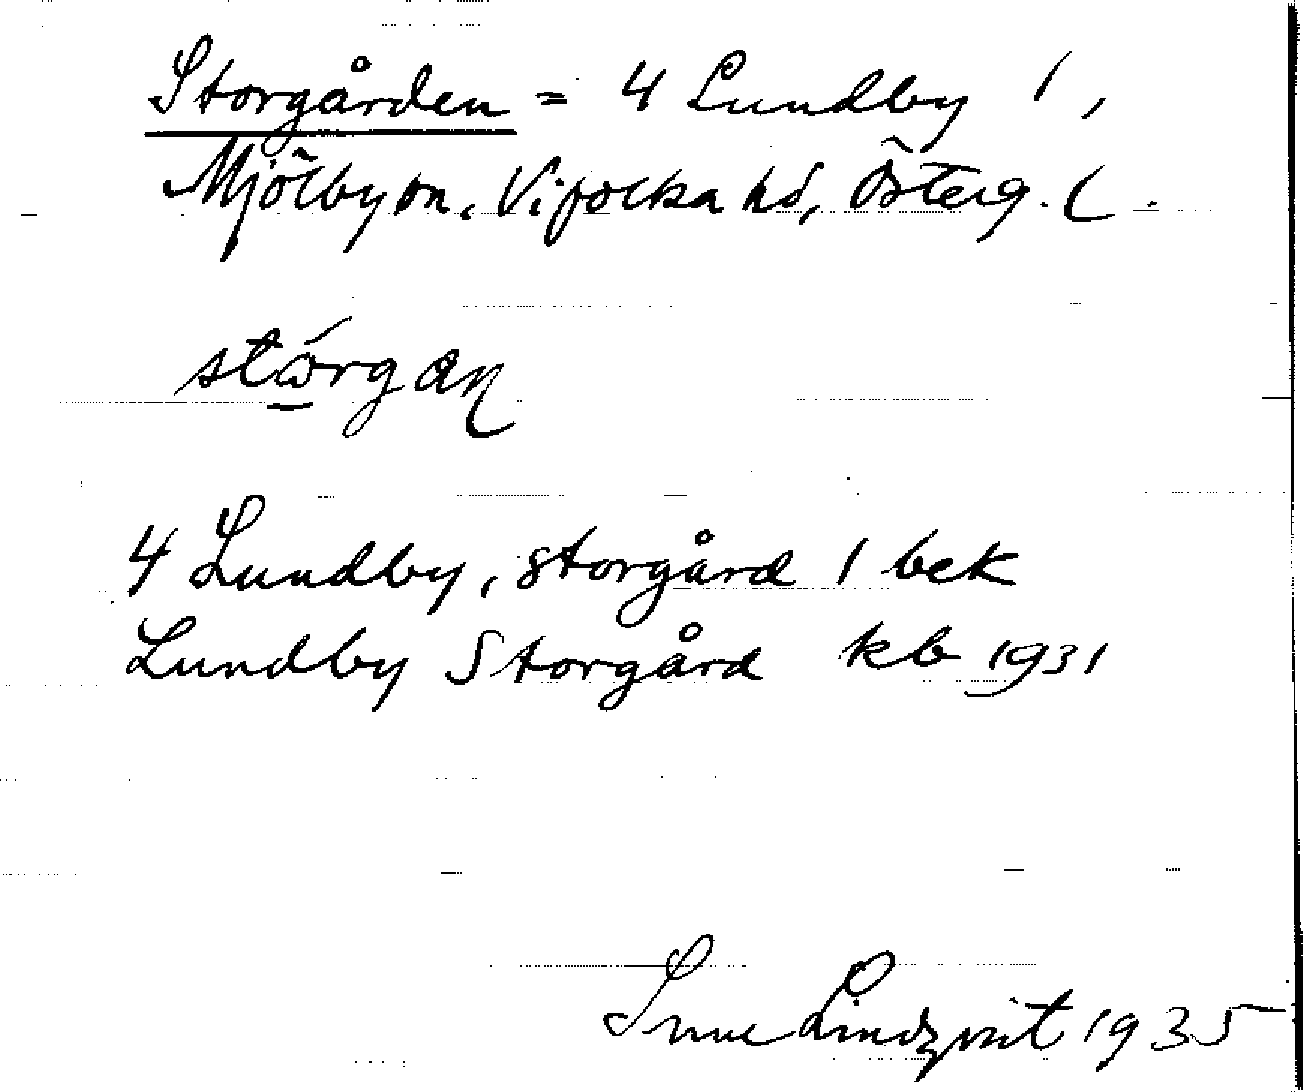 Storgården = 4 Lundby 1,
Mjölby sn, Vifolka hd, Österg. L.
stórgaɳ
4 Lundby, storgård 1 bek
Lundby Storgård kb 1931
Lindqvist 1935